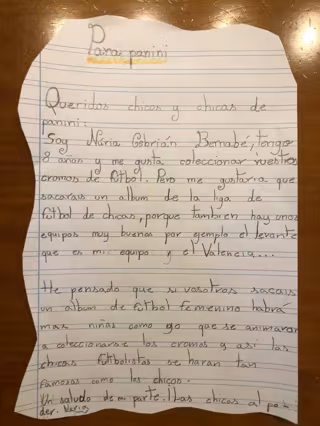 Para panini
Queridos chicos y chicas de
panini:
Soy Núria Cebrián Bernabé, tengo
8 años y me gusta coleccionar vuestros
cromos de fútbol. Pero me gustaria que
sacarais un album de la liga de
fútbol de chicas, porque tambien hay unos
equipos muy buenos por ejemplo el levante
que es mi equipo y el Valencia...
He pensado que si vosotros sacais
un álbum de futbol femenino habrá
mas niñas como yo que se animaran
a coleccionarse los cromos y asi las
chicas futbolistas se haran tan
famosas como los chicos.
Un saludo de mi parte. ¡Las chicas al po-
der. Núria